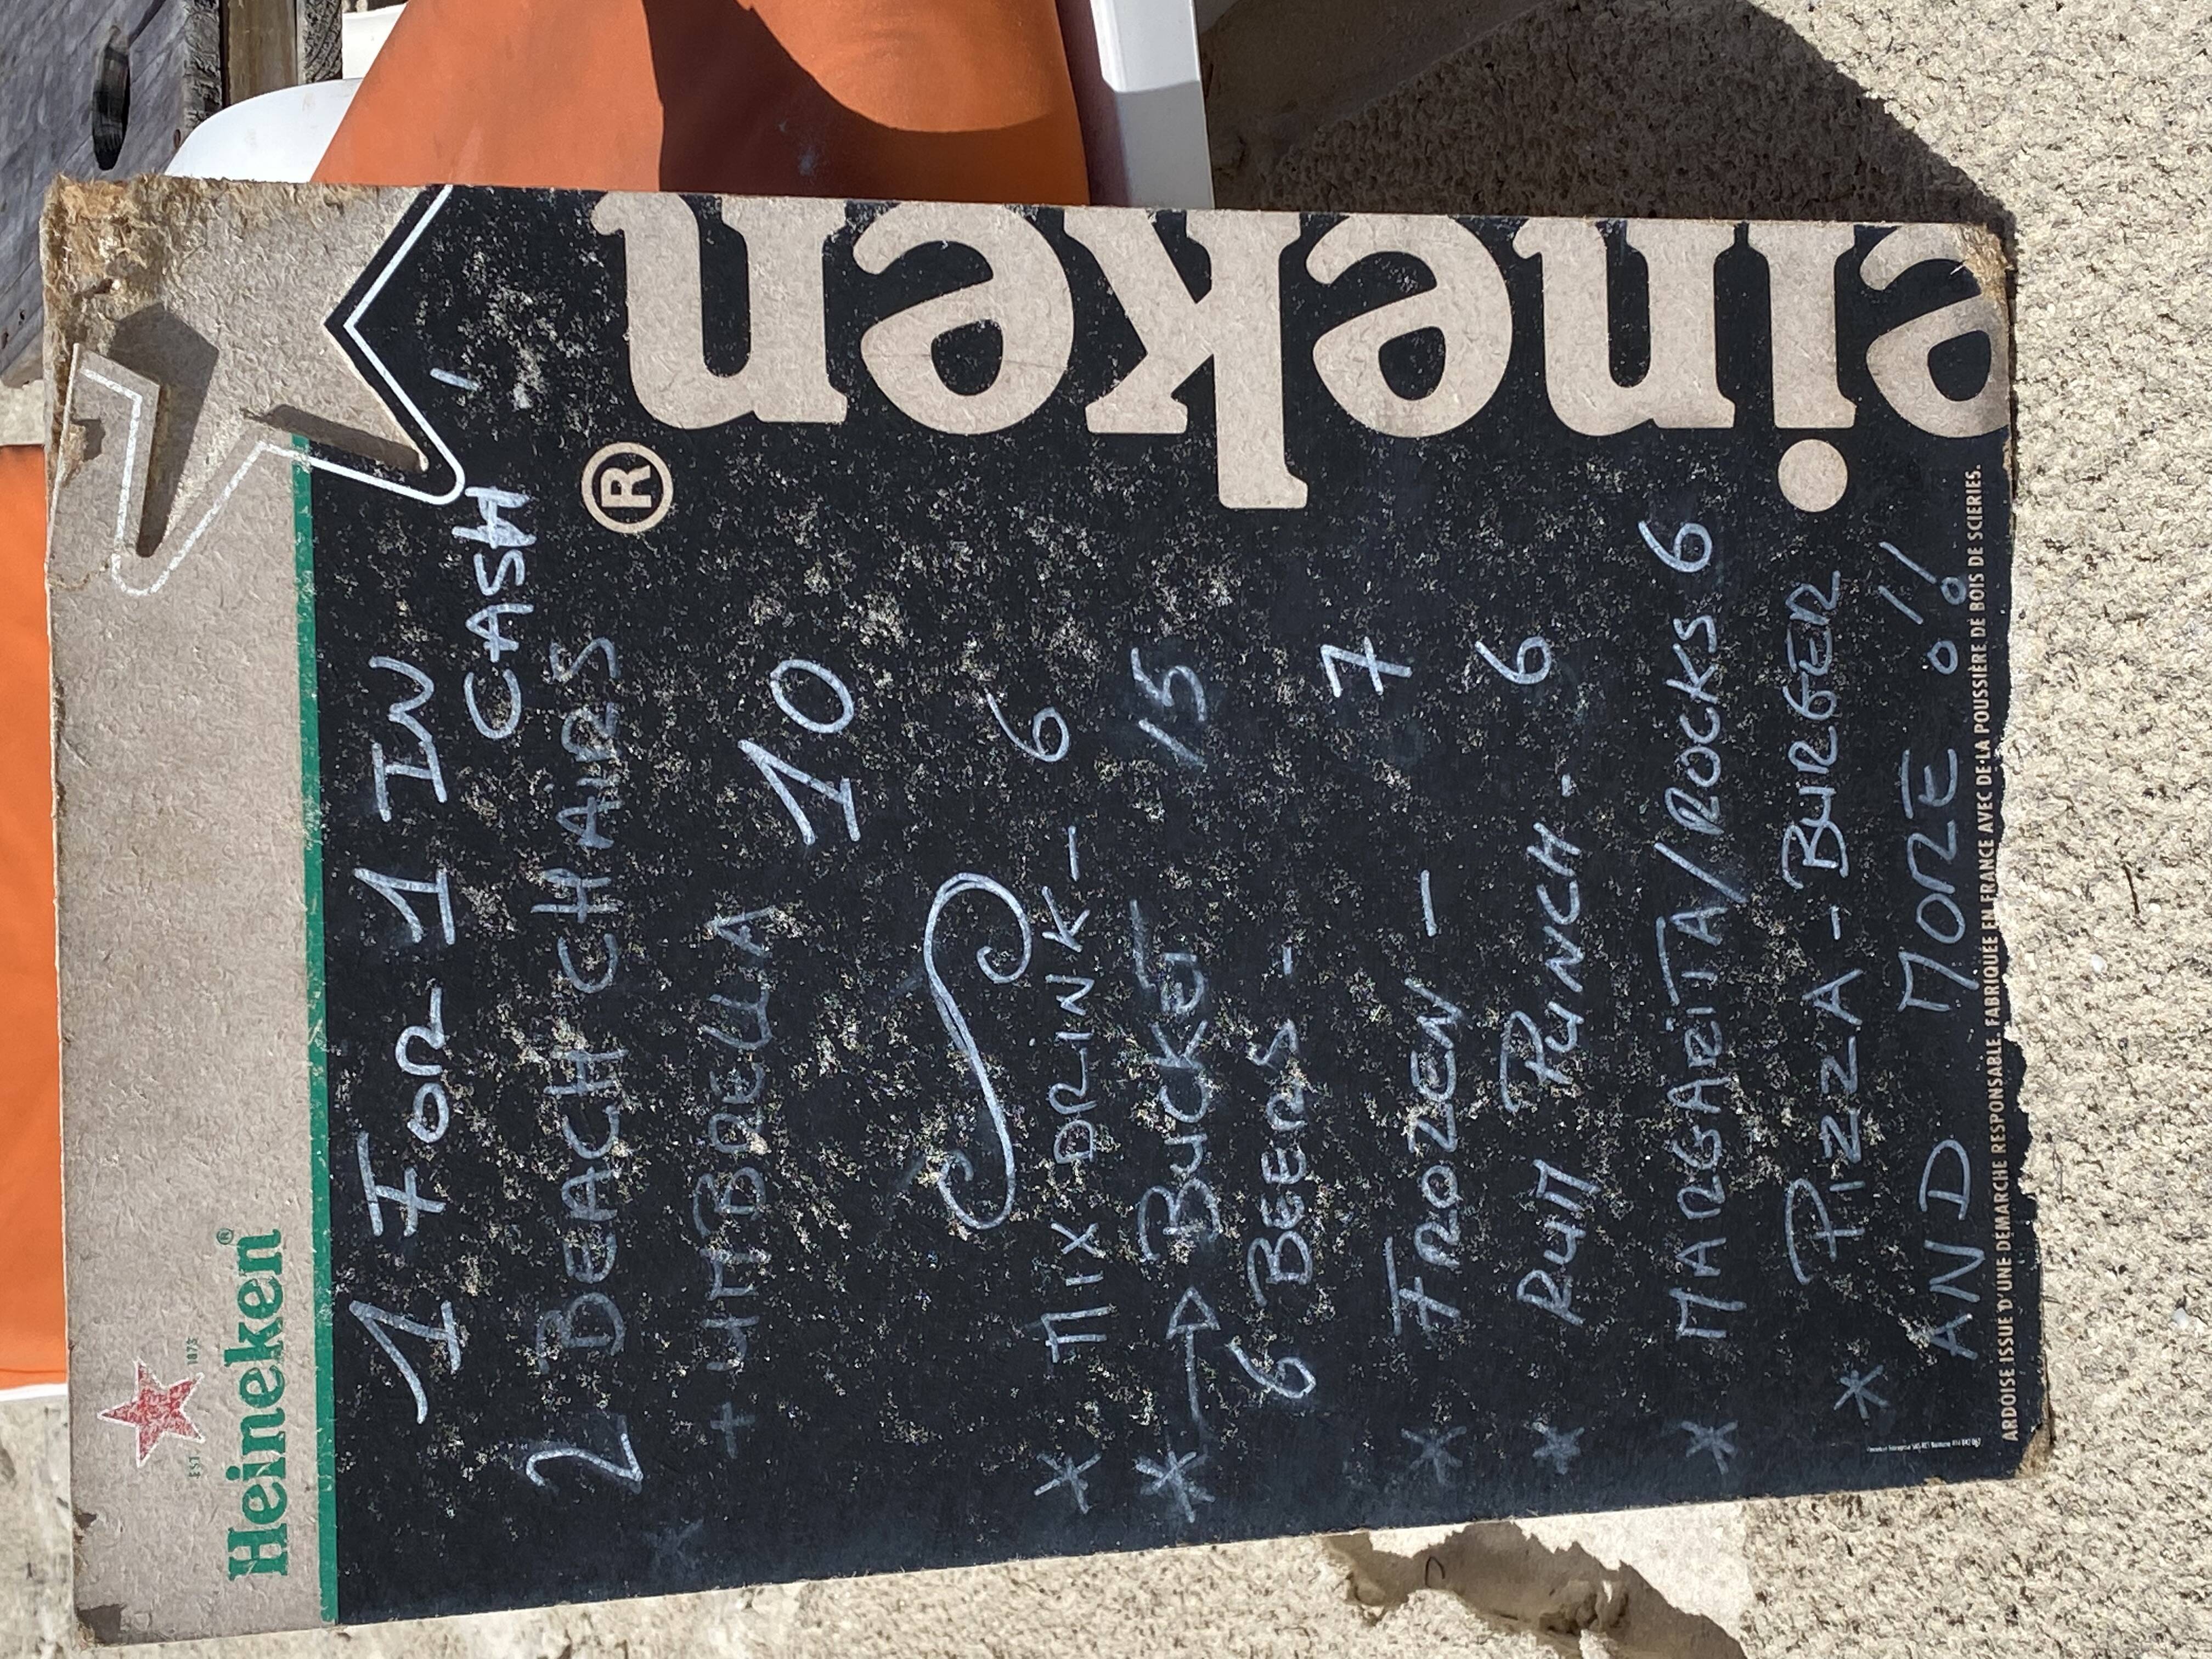 EST 1873
Heineken®
1 FOR 1 IN
CASH
2 BEACH CHAIRS
+ UMBRELLA
10
* MIX DRINK - 6
* BUCKET 15
6 BEERS -
* FROZEN - 7
* RUM PUNCH - 6
* MARGARITA/ROCKS 6
* PIZZA - BURGER
AND MORE !!
ARDOISE ISSUE D'UNE DÉMARCHE RESPONSABLE. FABRIQUÉE EN FRANCE AVEC DE LA POUSSIÈRE DE BOIS DE SCIERIES.
eineken®